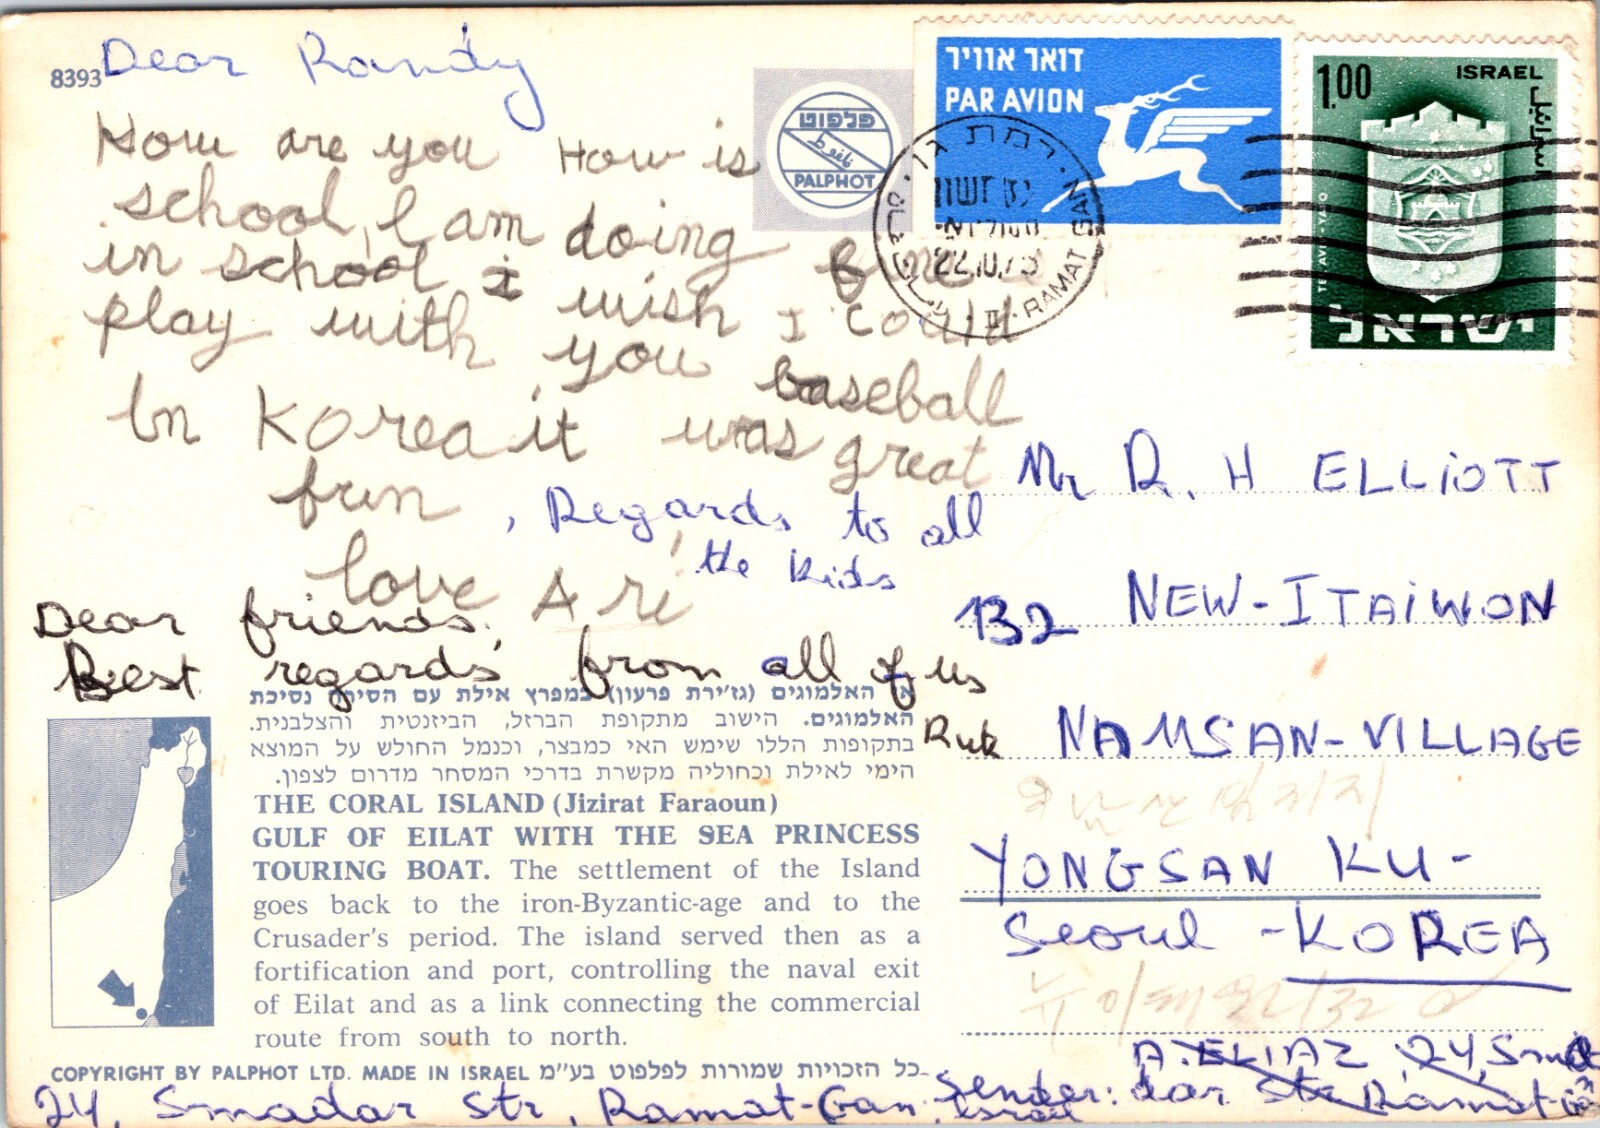 8393
Dear Randy
How are you How is
school, I am doing fine
in school i wish I could
play with you baseball
In Korea it was great
fun, Regards to all
the kids
love Ari
Dear friends,
Best regards from all of us
Rut
פלפוט
PALPHOT
דואר אוויר
PAR AVION
רמת גן
22.10.73
RAMAT GAN
1.00
ISRAEL
اسرائيل
TEL AVIV-YAFO
ישראל
Mr R. H ELLiOTT
132 NEW-ITAiWON
NAMSAN-VILLAGE
YONGSAN KU-
Seoul - KOREA
뉴이태원 132
אי האלמוגים (גז'ירת פרעון) במפרץ אילת עם הסירה נסיכת
האלמוגים. הישוב מתקופת הברזל, הביזנטית והצלבנית.
בתקופות הללו שימש האי כמבצר, וכנמל החולש על המוצא
הימי לאילת וכחוליה מקשרת בדרכי המסחר מדרום לצפון.
THE CORAL ISLAND (Jizirat Faraoun)
GULF OF EILAT WITH THE SEA PRINCESS
TOURING BOAT. The settlement of the Island
goes back to the iron-Byzantic-age and to the
Crusader's period. The island served then as a
fortification and port, controlling the naval exit
of Eilat and as a link connecting the commercial
route from south to north.
COPYRIGHT BY PALPHOT LTD. MADE IN ISRAEL כל הזכויות שמורות לפלפוט בע"מ
Sender: A. ELIAZ 24, Sma
dar Str Ramat-Ga
24, Smadar Str, Ramat-Gan. Israel